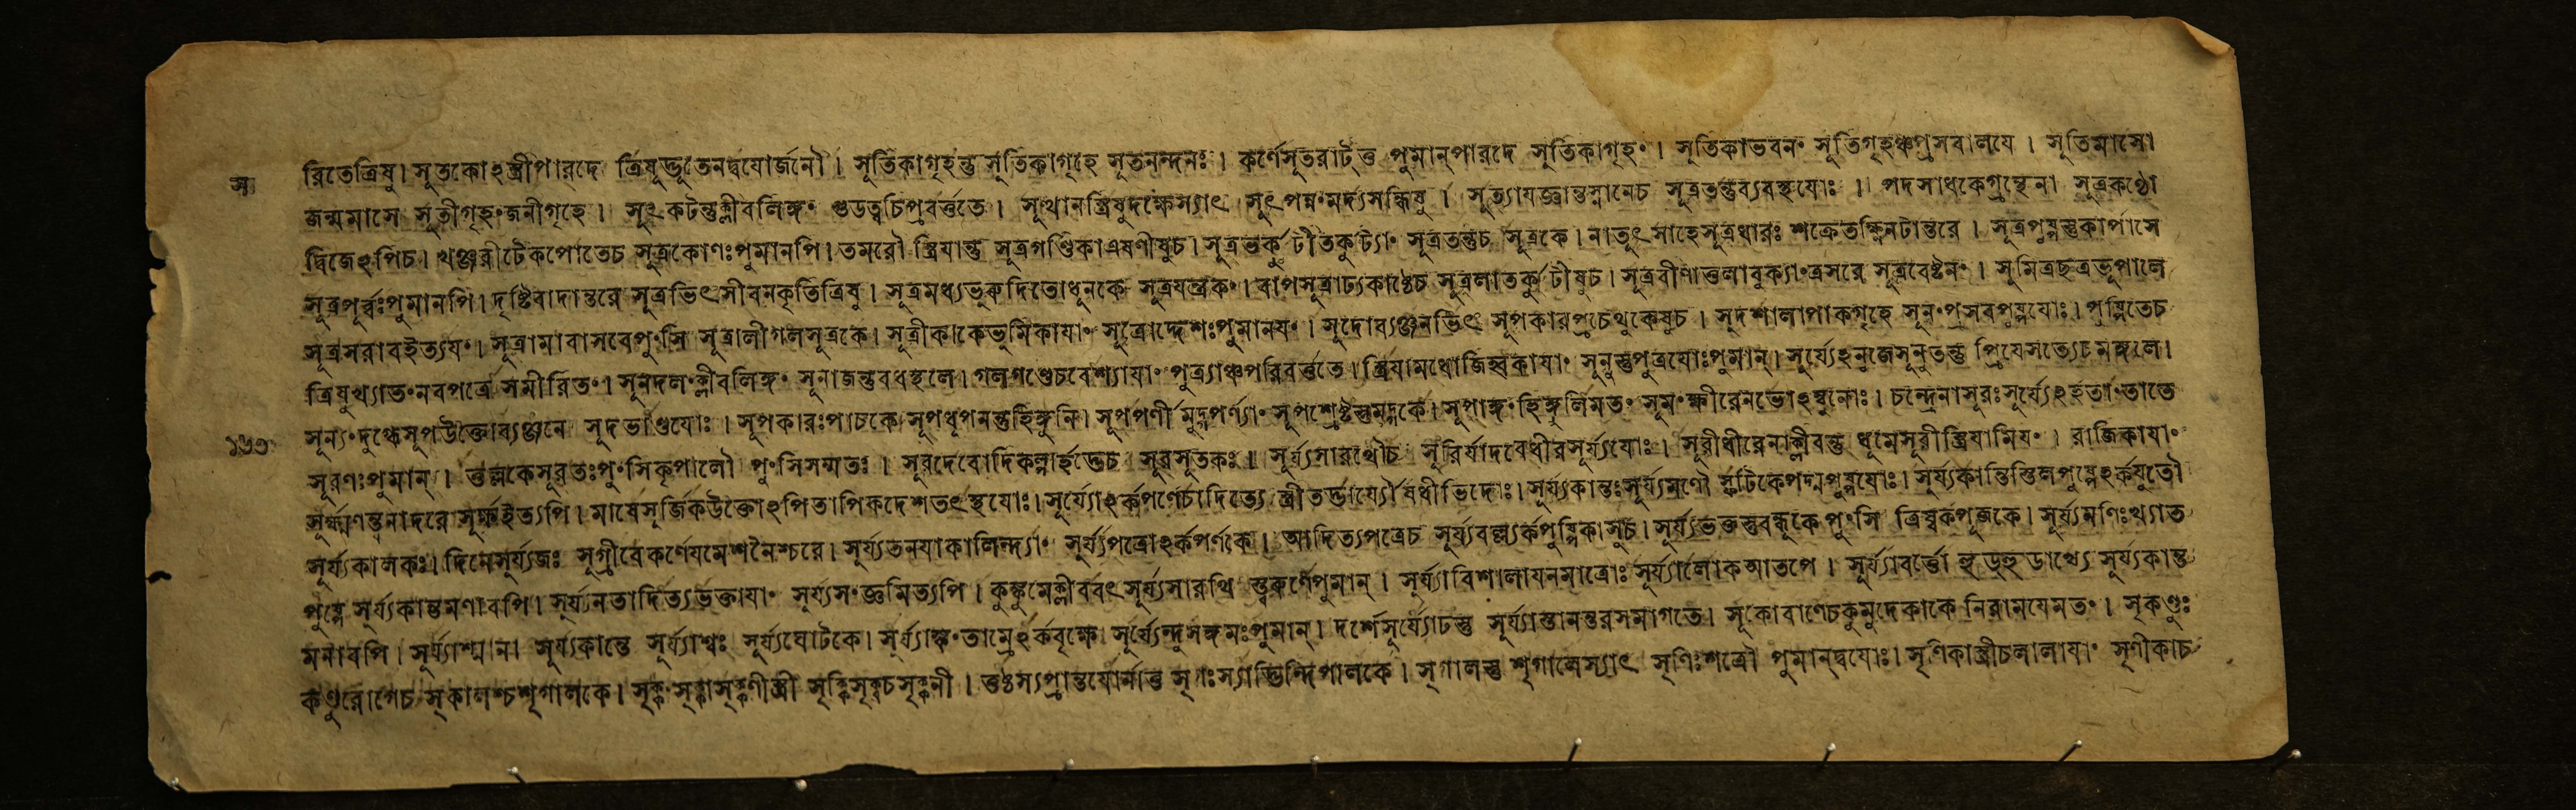 স
রিতেত্রিষু। সূতকোঽস্ত্রীপারদে ত্রিষূদ্ভূতেনদ্বযোর্জনৌ। সূতিকাগৃহন্তু সূতিকাগৃহে সূতনন্দনঃ। কর্ণেসূতরাট্‌ত্ত পুমান্‌পারদে সূতিকাগৃহং। সূতিকাভবনং সূতিগৃহঞ্চপ্রসবালযে। সূতিমাসো
জন্মমাসে সূতীগৃহংজনীগৃহে। সূৎকটন্তুক্লীবলিঙ্গং গুডত্বচিপ্রবর্ত্ততে। সূত্থানস্ত্রিষুদক্ষেস্যাৎ সূৎপন্নংমর্দ্যসন্ধিষু। সূত্যাযজ্ঞান্তস্নানেচ সূত্রতন্তুব্যবস্থযোঃ।। পদসাধকেগ্রন্থেনা সূত্রকণ্ঠো
দ্বিজেঽপিচ। খঞ্জরীটেকপোতেচ সূত্রকোণঃপুমানপি। তমরৌ স্ত্রিযান্তু সূত্রগণ্ডিকাএষণীষুচ। সূত্রতর্কুটীতকুট্যাং সূত্রতন্তুচ সূত্রকে। নাতুৎসাহেসূত্রধারঃ শক্রেতক্ষ্ণিনটান্তরে। সূত্রপুষ্পস্তুকার্পাসে
সূত্রপূর্ব্বঃপুমানপি। দৃষ্টিবাদান্তরে সূত্রভিৎসীবনকৃতিত্রিষু। সূত্রমধ্যভুরুদিতোধূনকে সূত্রযন্ত্রকং। বাপসূত্রাঢ্যকাষ্ঠেচ সূত্রলাতর্কুটীষুচ। সূত্রবীণাত্তলাবুক্যাংত্রসরে সূত্রবেষ্টনং। সুমিত্রছত্রভূপালে
সূত্রসরাবইত্যযং। সূত্রামাবাসবেপুংসি সূত্রালীগলসূত্রকে। সূত্রীকাকেভূমিকাযাং সূত্রোদ্দেশঃপুমানযং। সূদোব্যঞ্জনভিৎ সূপকারপ্রচেথুকেষুচ। সূদশালাপাকগৃহে সূনংপ্রসবপুষ্পযোঃ। পুষ্পিতেচ
ত্রিষুখ্যাতংনবপত্রে সমীরিতং। সূনদলংক্লীবলিঙ্গং সূনাজন্তুবধস্থলে। গলগণ্ডেচবেশ্যাযাং পুত্র্যাঞ্চপরিবর্ত্ততে। স্ত্রিযামধোজিহ্বকাযাং সূনুস্তুপুত্রযোঃপুমান্‌। সূর্য্যেঽনুজেসূনৃতন্তু প্রিযেসত্যেচমঙ্গলে।
১৬৩
সূন্যংদুগ্ধেসূপউক্তোব্যঞ্জনে সূদভাণ্ডযোঃ। সূপকারঃপাচকে সূপধূপনন্তুহিঙ্গুনি। সূপপর্ণী মুদ্গপর্ণ্যাং সূপশ্রেষ্টস্তুমুদ্গকে। সূপাঙ্গংহিঙ্গুলির্মতং সূমংক্ষীরেনভোঽম্বুনোঃ। চন্দ্রেনাসূরঃসূর্য্যেঽর্হতাংতাতে
সূরণঃপুমান্‌। ত্তল্লকেসূরতঃপুংসিকৃপালৌ পুংসিসম্মতঃ। সূরদেবোদিকল্লার্হত্তেচ সূরসূতকঃ। সূর্য্যসারথৌচ সূরির্যাদবেধীরসূর্য্যযোঃ। সূরীধীরেনাক্লীবন্তু ধূমেসূরীস্ত্রিযামিযং। রাজিকাযাং
সূর্ক্ষ্যণন্ত্বনাদরে সূর্ক্ষইত্যপি। মাষেসূর্জিকউক্তোঽপিতাপিকদেশতৎস্থযোঃ। সূর্য্যোঽর্কপর্ণেচাদিত্যে স্ত্রীতর্ভ্ভার্য্যৌষধীভিদোঃ। সূর্য্যকান্তঃসূর্য্যমণৌ স্ফটিকেপদ্মপুষ্পযোঃ। সূর্য্যকান্তিস্তিলপুষ্পেঽর্কযুতৌ
সূর্য্যকালকঃ। দিনেসূর্য্যজঃ সুগ্রীবেকর্ণেযমেশনৈশ্চরে। সূর্য্যতনযাকালিন্দ্যাং সূর্য্যপত্রোঽর্কপর্ণকে। আদিত্যপত্রেচ সূর্য্যবল্ল্যর্কপুষ্পিকাসুচ। সূর্য্যভক্তস্তুবন্ধূকেপুংসি ত্রিষ্বর্কপূজকে। সূর্য্যমণিঃখ্যাত
পুষ্পে সূর্য্যকান্তমণাবপি। সূর্য্যলতাদিত্যভক্তাযাং সূর্য্যসংজ্ঞমিত্যপি। কুঙ্কুমেক্লীববৎসূর্য্যসারথি স্ত্বরুণেপুমান্‌। সূর্য্যাবিশালাযনমাত্রোঃ সূর্য্যালোকআতপে। সূর্য্যাবর্ত্তো হুডুহুডাখ্যে সূর্য্যকান্ত
মনাবপি। সূর্য্যাশ্মান। সূর্য্যকান্তে সূর্য্যাশ্বঃ সূর্য্যঘোটকে। সূর্য্যাহ্বংতাম্রেঽর্কবৃক্ষে। সূর্য্যেন্দুসঙ্গমঃপুমান্‌। দর্শেসূর্য্যোঢস্তু সূর্য্যাস্তানন্তরসমাগতে। সৃকোবাণেচকুমুদেকাকে নিরামযেমতং। সৃকণ্ডুঃ
কণ্ডুরোগেচ সৃকালশ্চশৃগালকে। সৃক্কংসৃক্কাসৃক্কণীস্ত্রী সৃক্কিসৃক্কচসৃক্কনী। ত্তষ্ঠস্যপ্রান্তযোর্মাত্ত সৃগঃস্যাদ্ভিন্দিপালকে। সৃগালস্তু শৃগালেস্যাৎ সৃণিঃশত্রৌ পুমান্‌দ্বযোঃ। সৃণিকাস্ত্রীচলালাযাং সৃণীকাচ